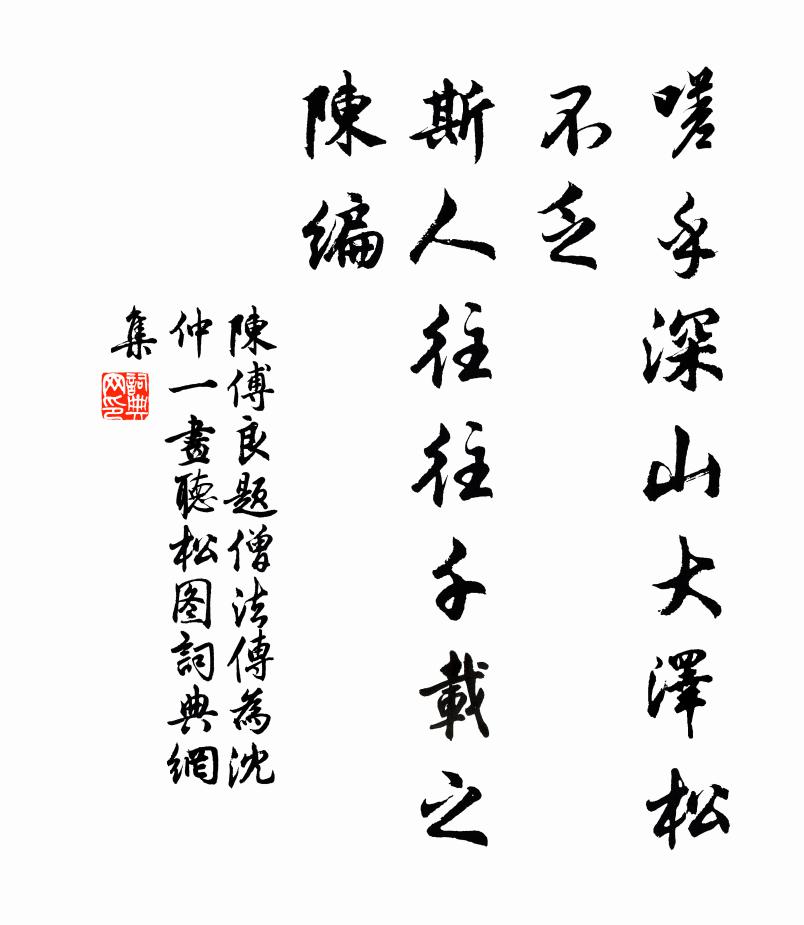 嗟乎深山大澤松
不乏
斯人往往千載之
陳編
陳傅良題僧法傳為沈
仲一畫聽松图詞典網
集
詞典
网印